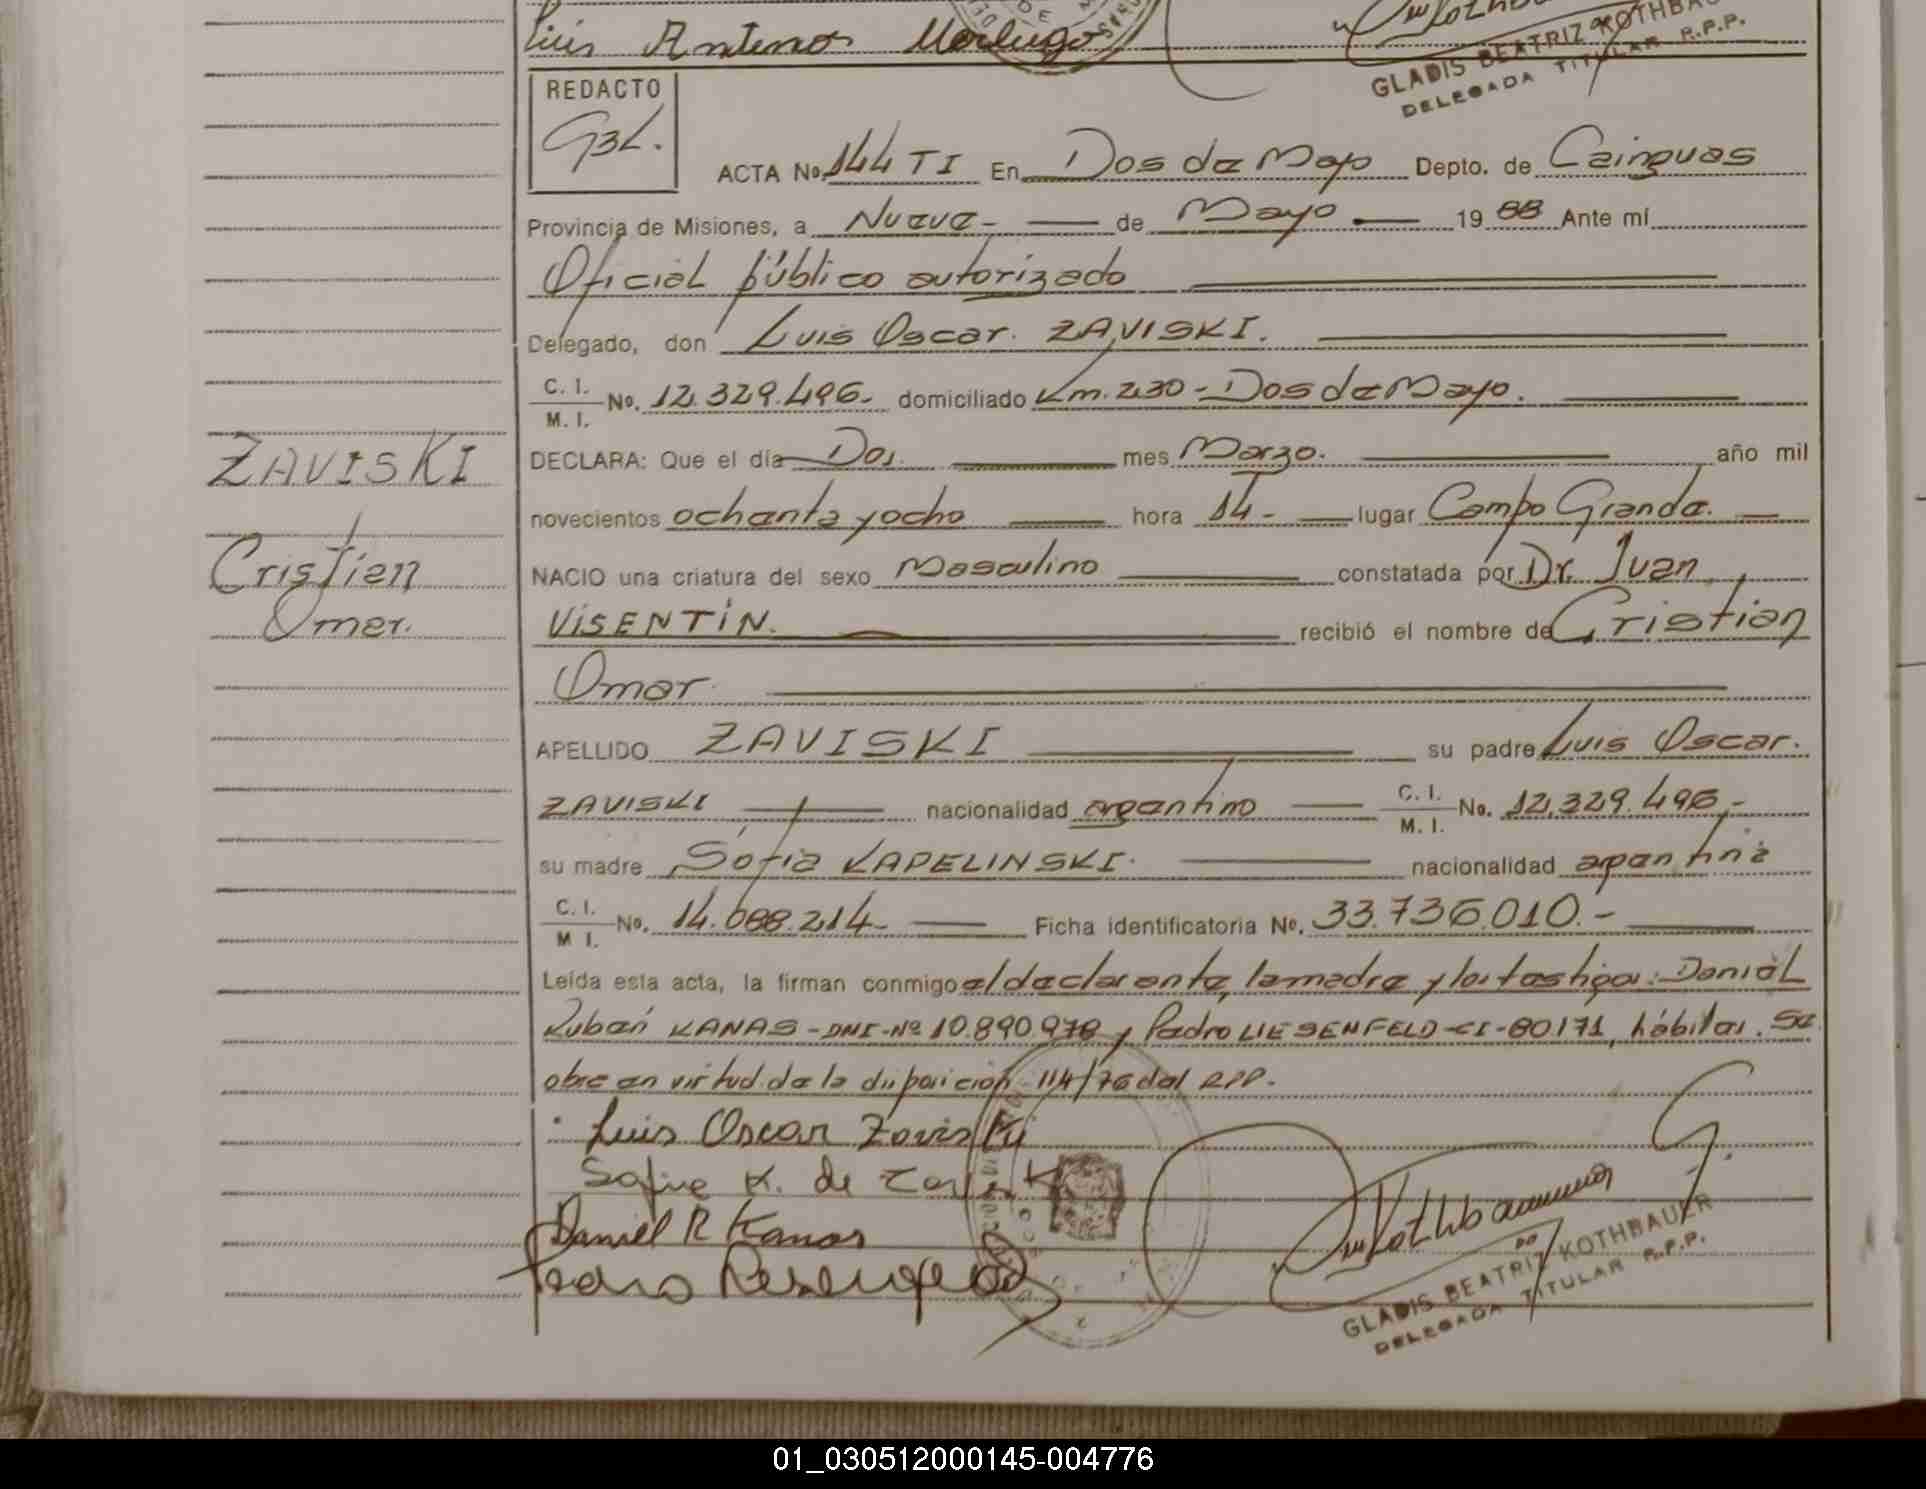 Luis Antenor
GLADIS BEATRIZ KOTHBAU
DELEGADA TITULAR R.P.P.
REDACTO
GBK.
ACTA No. 144 TI En Dos de Mayo Depto. de Cainguas
Provincia de Misiones, a Nueve - de Mayo 19 88 Ante mí
Oficial público autorizado
Delegado, don Luis Oscar. ZAVISKI.
C. I. M. I. No. 12.329.496- domiciliado Km. 230 - Dos de Mayo.
DECLARA: Que el día Dos. mes Marzo. año mil
novecientos ochenta y ocho hora 14 - lugar Campo Grande.
NACIO una criatura del sexo Masculino constatada por Dr. Juan
VISENTIN. recibió el nombre de Cristian
Omar.
APELLIDO ZAVISKI su padre Luis Oscar.
ZAVISKI nacionalidad argentino C. I. M. I. No. 12.329.496-
su madre Sofia KAPELINSKI. nacionalidad argentina
C. I. M I. No. 14.088.214- Ficha identificatoria No. 33.736.010.-
Leída esta acta, la firman conmigo el declarante, la madre y los testigos: Daniel
Rubén KANAS-DNI-Nº 10.890.978 y Pedro LIESENFELD-CI-80171, hábiles. Se
obre en virtud de la disposición 114/76 del RPP.
ZAVISKI
Cristian
Omar.
Luis Oscar Zaviski
K. de
Daniel R Kanas
Pedro
GLADIS BEATRIZ KOTHBAUER
DELEGADA TITULAR R.P.P.
01_030512000145-004776